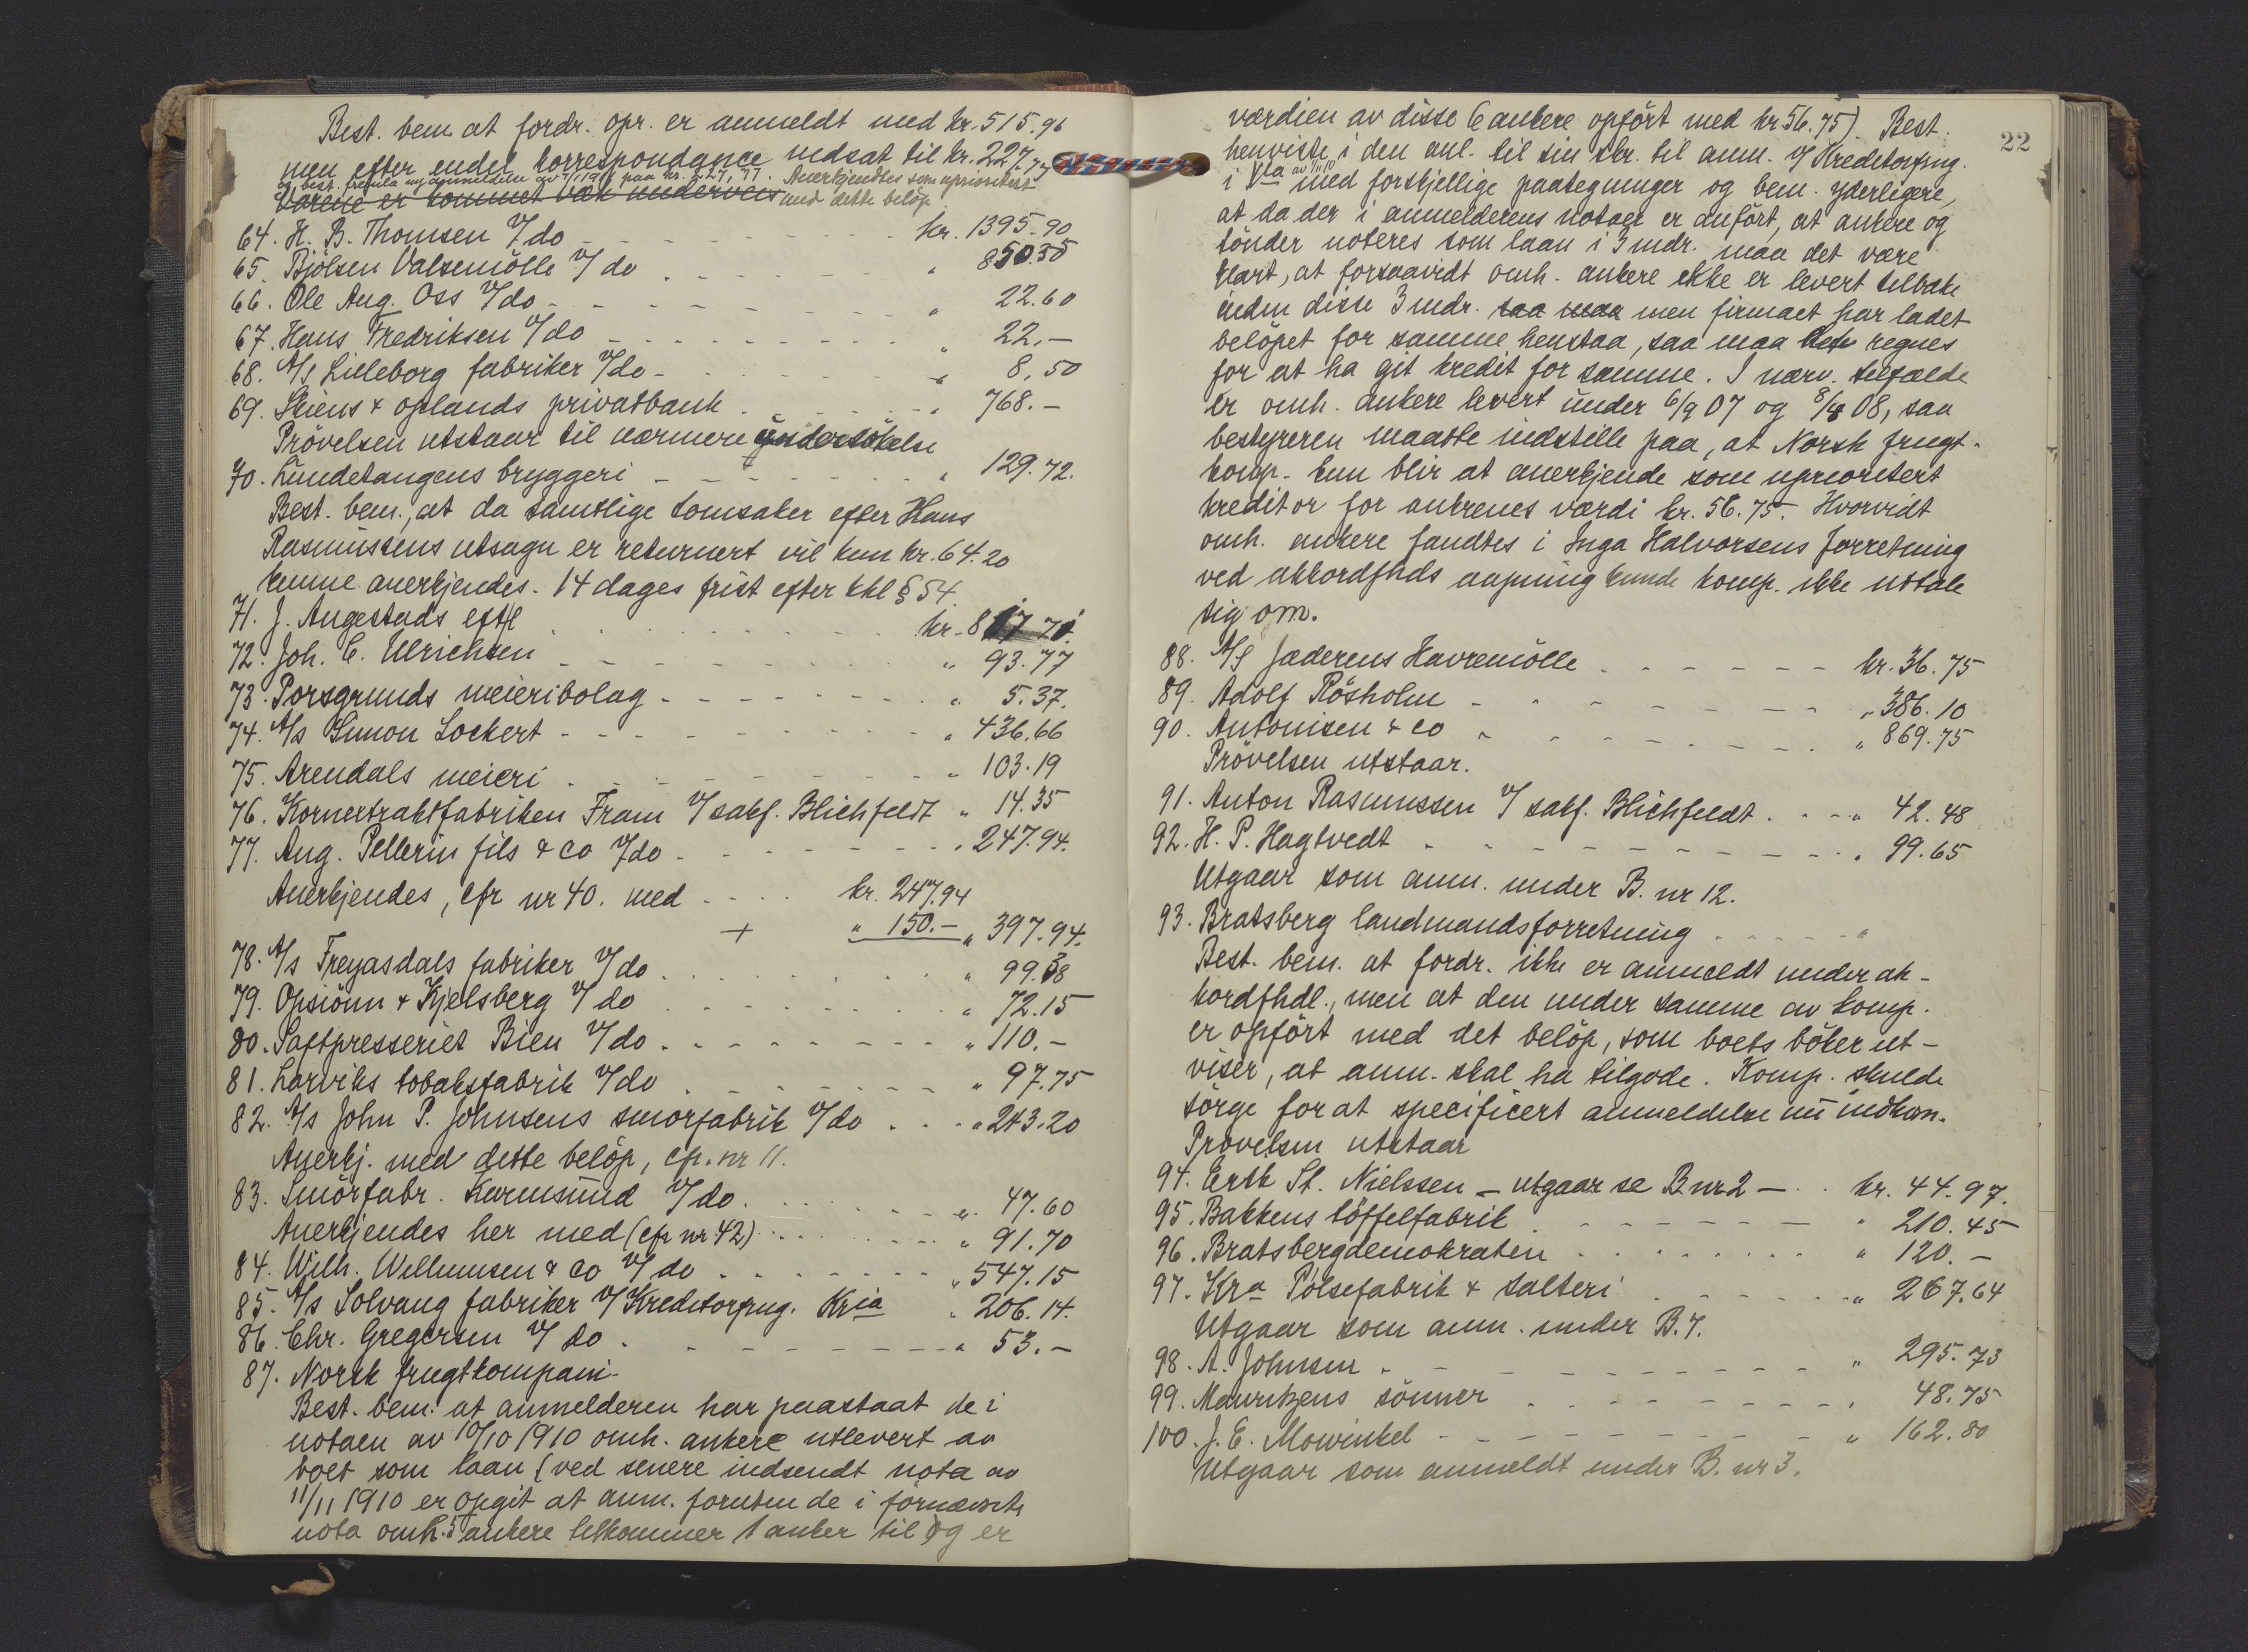 Best. bem. at fordr. opr. er anmeldt med kr. 515.96
men efter endel korrespondance nedsat til kr. 227.77
og best. fremla ny anmeldelse av 7/1 1911 paa kr. 227,77. Anerkjendtes som uprioritert
Varene er kommet væk underveis med dette beløp
64. H. B. Thomsen v/ do - - - - - kr. 1395.90
65. Bjölsen Valsemölle v/ do . - - - - " 850.35
66. Ole Aug. Oss v/ do - - - - - " 22.60
67. Hans Fredriksen v/ do - - - - - " 22.-
68. A/s Lilleborg fabriker v/ do - - - - - " 8,50
69. Skiens & oplands privatbank . - - - - " 768.-
Prövelsen utstaar til nærmere undersökelse
70. Lundetangens bryggeri - - - - - " 129.72.
Best. bem., at da samtlige tomsaker efter Hans
Rasmussens utsagn er returnert vil kun kr. 64.20
kunne anerkjendes. 14 dages frist efter kkl § 54.
71. J. Angestads eftf . . . . . kr. 817 71.
72. Joh. C. Ulrichsen - - - - - " 93.77
73. Porsgrunds meieribolag - - - - - " 5.37.
74. A/s Simon Lockert - - - - - " 436.66
75. Arendals meieri . - - - - " 103.19
76. Kornextraktfabriken Fram v/ sakf. Blichfeldt " 14.35
77. Aug. Pellerin fils & co v/ do - - - - - " 247.94.
Anerkjendes, cfr nr 40. med - . . . kr. 247.94
+ " 150.- " 397.94.
78. A/s Freyasdals fabriker v/ do . . . . . " 99.38
79. Opsiönn & Kjelsberg v/ do . . . . . " 72.15
80. Saftpresseriet Bien v/ do . - - - - " 110.-
81. Larviks tobaksfabrik v/ do . - - - - " 97.75
82. A/s John P. Johnsens smörfabrik v/ do . . . " 243.20
Anerkj. med dette belöp, cfr. nr 11.
83. Smörfabr. Karmsund v/ do . . . - - " 47.60
Anerkjendes her med (cfr nr 42) . . . . . " 91.70
84. Wilh. Willumsen & co v/ do . . - - - " 547.15
85. A/s Solvang fabriker v/ Kreditorfrng. Kria " 206.14.
86. Chr. Gregersen v/ do . - - - - " 53.-
87. Norsk frugtkompani-
Best. bem. at anmelderen har paastaat de i
notaen av 10/10 1910 omh. ankere utlevert av
boet som laan (ved senere indsendt nota av
11/11 1910 er opgit at anm. foruten de i førnævnte
nota omh. 5 ankere tilkommer 1 anker til og er
22
værdien av disse 6 ankere opfört med kr 56.75). Best.
henviste i den anl. til sin skr. til anm. v/ Kreditorfrng.
i Kra av 11/11 10 med forskjellige paategninger og bem. yderligere,
at da der i anmelderens notaer er anfört, at ankere og
tönder noteres som laan i 3 mdr. maa det være
klart, at forsaavidt omh. ankere ikke er levert tilbake
inden disse 3 mdr. saa maa men firmaet har ladet
belöpet for samme henstaa, saa maa det regnes
for at ha git kredit for samme. I nærv. tilfælde
er omh. ankere levert under 6/9 07 og 8/4 08, saa
bestyreren maatte indstille paa, at Norsk frugt-
komp. kun blir at anerkjende som uprioritert
kreditor for ankrenes værdi kr. 56.75. Hvorvidt
omh. ankere fandtes i Inga Halvorsens forretning
ved akkordfhds aapning kunde komp. ikke uttale
sig om.
88. A/S Jæderens Havremölle . - - - - kr. 36.75
89. Adolf Rösholm - - - - - " 386.10
90. Antonisen & co - - - - - " 869.75
Prövelsen utstaar.
91. Anton Rasmussen v/ sakf. Blichfeldt . . - " 42.48
92. H. P. Hagtvedt - - - - - " 99.65
Utgaar som anm. under B. nr 12.
93. Bratsberg landmandsforretning . . . - "
Best. bem. at fordr. ikke er anmeldt under ak-
kordfhdl., men at den under samme av komp.
er opfört med det belöp, som boets böker ut-
viser, at anm. skal ha tilgode. Komp. skulde
sörge for at specificert anmeldelse nu indkom.
Prövelsen utstaar
94. Erik St. Nielssen - utgaar se B nr 2 - . . kr. 44.97.
95. Bakkens töffelfabrik . - - - - " 210.45
96. Bratsbergdemokraten . . . . . " 120.-
97. Kra Pölsefabrik & salteri . . - - " 267.64
Utgaar som anm. under B. 7.
98. A. Johnsen . - - - - " 295.73
99. Mauritzens sönner . . - - - " 48.75
100. J. E. Mowinkel . - - - - " 162.80
Utgaar som anmeldt under B. nr 3.